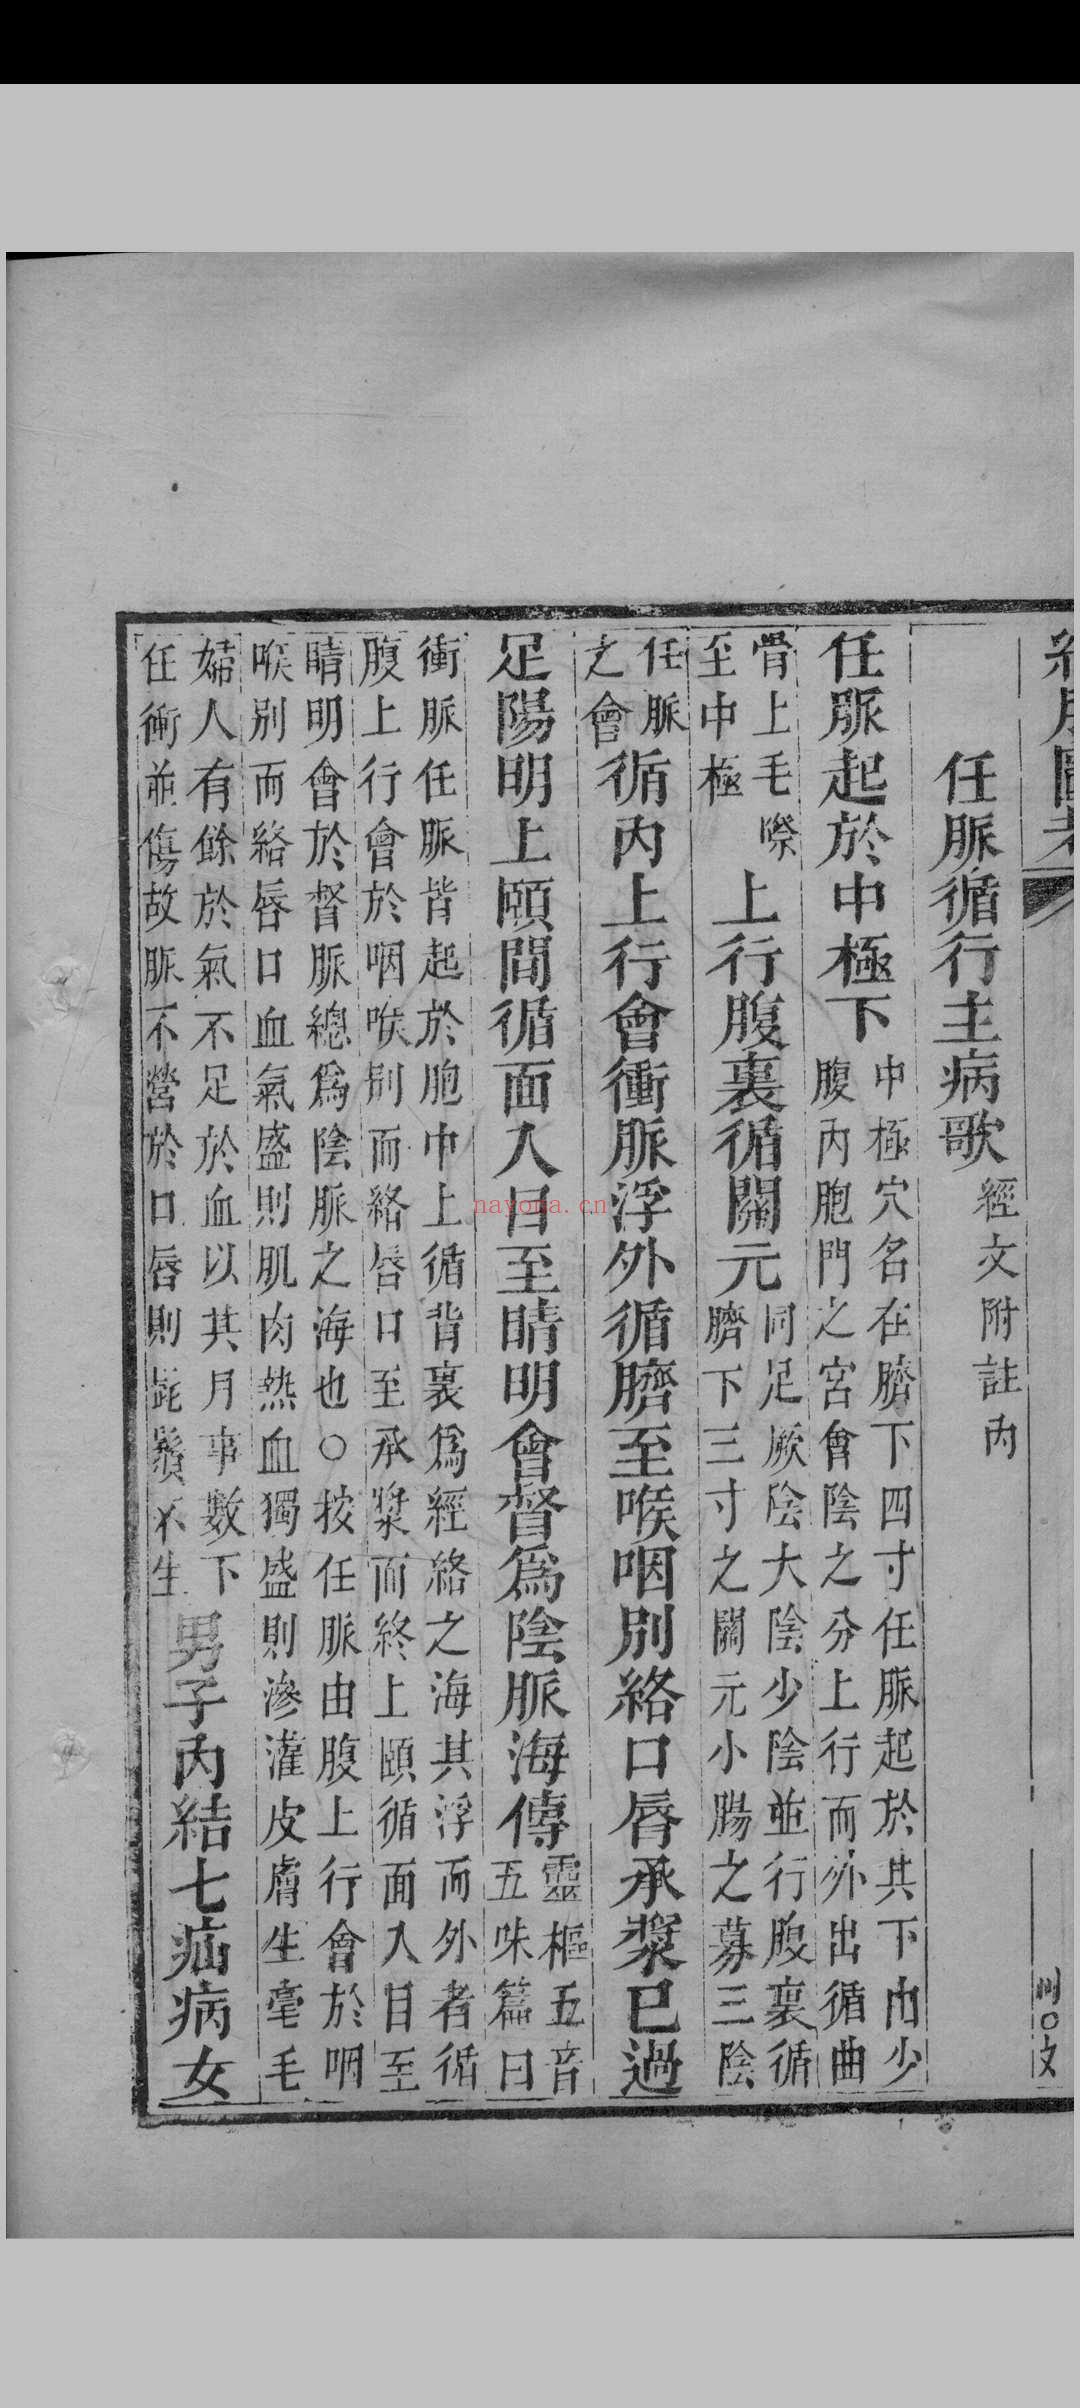 經脈圖考
川〇文
任脈循行主病歌 經文附註內
任脈起於中極下 中極穴名在臍下四寸任脈起於其下巾少
腹內胞門之宮會陰之分上行而外出循曲
骨上毛際
至中極
上行腹裏循關元 同足厥陰大陰少陰並行腹裏循
臍下三寸之關元小腸之募三陰
任脈
之會
循內上行會衝脈浮外循臍至喉咽別絡口唇承漿已過
足陽明上頤間循面入目至睛明會督為陰脈海傳 靈樞五音
五味篇曰
衝脈任脈皆起於胞中上循背裏為經絡之海其浮而外者循
腹上行會於咽喉別而絡唇口至承漿而終上頤循面入目至
睛明會於督脈總為陰脈之海也○按任脈由腹上行會於咽
喉別而絡唇口血氣盛則肌肉熱血獨盛則滲灌皮膚生毫毛
婦人有餘於氣不足於血以其月事數下
任衝並傷故脈不營於口唇則髭鬚不生
男子內結七疝病女
nayona.cn